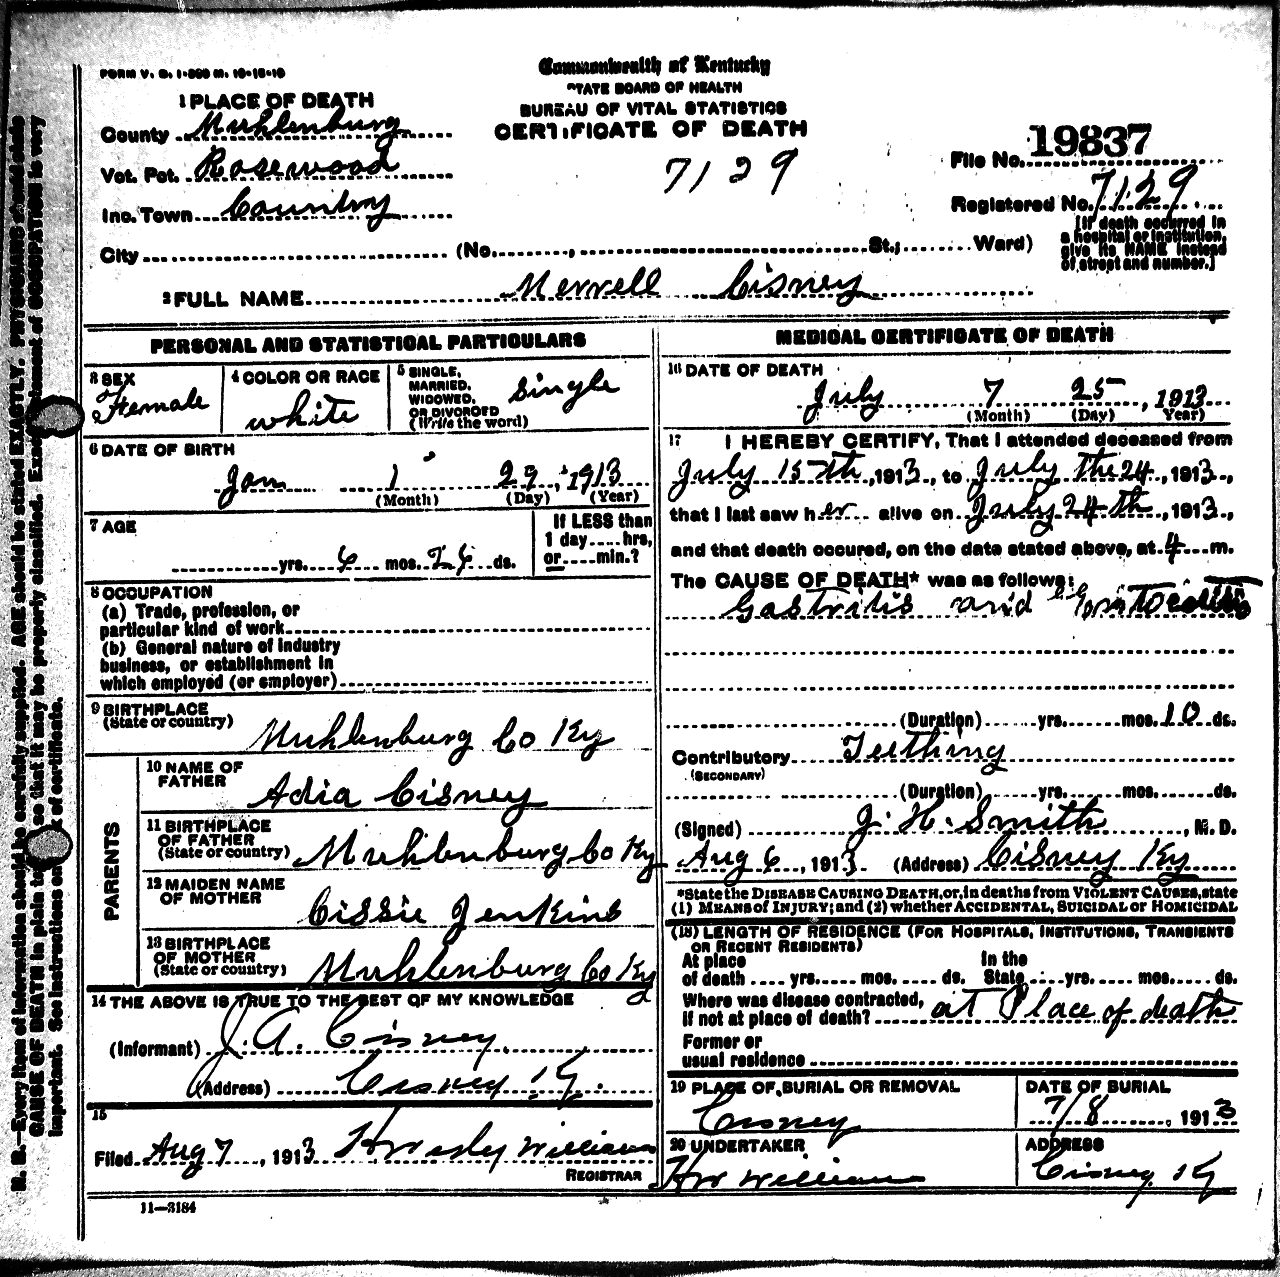 FORM V. S. 1-500 M. 10-16-10
Commonwealth of Kentucky
STATE BOARD OF HEALTH
BUREAU OF VITAL STATISTICS
CERTIFICATE OF DEATH
1 PLACE OF DEATH
County Muhlenburg
Vot. Pct. Rosewood
Inc. Town Country
City (No. , St.; Ward)
7129
File No. 19837
Registered No. 7129
[If death occurred in a hospital or institution, give its NAME instead of street and number.]
2 FULL NAME Merrell Cisney
PERSONAL AND STATISTICAL PARTICULARS
3 SEX Female
4 COLOR OR RACE white
5 SINGLE, MARRIED, WIDOWED, OR DIVORCED (Write the word) single
6 DATE OF BIRTH
Jan 1 29, 1913
(Month) (Day) (Year)
7 AGE
yrs. 6 mos. 26 ds.
If LESS than 1 day hrs, or min.?
8 OCCUPATION
(a) Trade, profession, or
particular kind of work
(b) General nature of industry
business, or establishment in
which employed (or employer)
9 BIRTHPLACE
(State or country) Muhlenburg Co Ky
PARENTS
10 NAME OF FATHER Adia Cisney
11 BIRTHPLACE OF FATHER (State or country) Muhlenburg Co Ky
12 MAIDEN NAME OF MOTHER Cissie Jenkins
13 BIRTHPLACE OF MOTHER (State or country) Muhlenburg Co Ky
14 THE ABOVE IS TRUE TO THE BEST OF MY KNOWLEDGE
(Informant) J. A. Cisney
(Address) Cisney Ky.
15
Filed Aug 7, 1913 Williams
REGISTRAR
11—3184
MEDICAL CERTIFICATE OF DEATH
16 DATE OF DEATH
July 7 25, 1913
(Month) (Day) (Year)
17 I HEREBY CERTIFY, That I attended deceased from
July 15th, 1913, to July the 24, 1913,
that I last saw her alive on July 24th, 1913,
and that death occured, on the date stated above, at 4 m.
The CAUSE OF DEATH* was as follows:
Gastritis and
(Duration) yrs. mos. 10 ds.
Contributory Teething
(SECONDARY)
(Duration) yrs. mos. ds.
(Signed) J. H. Smith, M. D.
Aug 6, 1913. (Address) Cisney Ky
*State the DISEASE CAUSING DEATH, or, in deaths from VIOLENT CAUSES, state
(1) MEANS of INJURY; and (2) whether ACCIDENTAL, SUICIDAL or HOMICIDAL
(18) LENGTH OF RESIDENCE (FOR HOSPITALS, INSTITUTIONS, TRANSIENTS
OR RECENT RESIDENTS)
At place of death yrs. mos. ds. In the State yrs. mos. ds.
Where was disease contracted,
if not at place of death? at Place of death
Former or
usual residence
19 PLACE OF BURIAL OR REMOVAL
Cisney
DATE OF BURIAL
7/8, 1913
20 UNDERTAKER
HW Williams
ADDRESS
Cisney, Ky